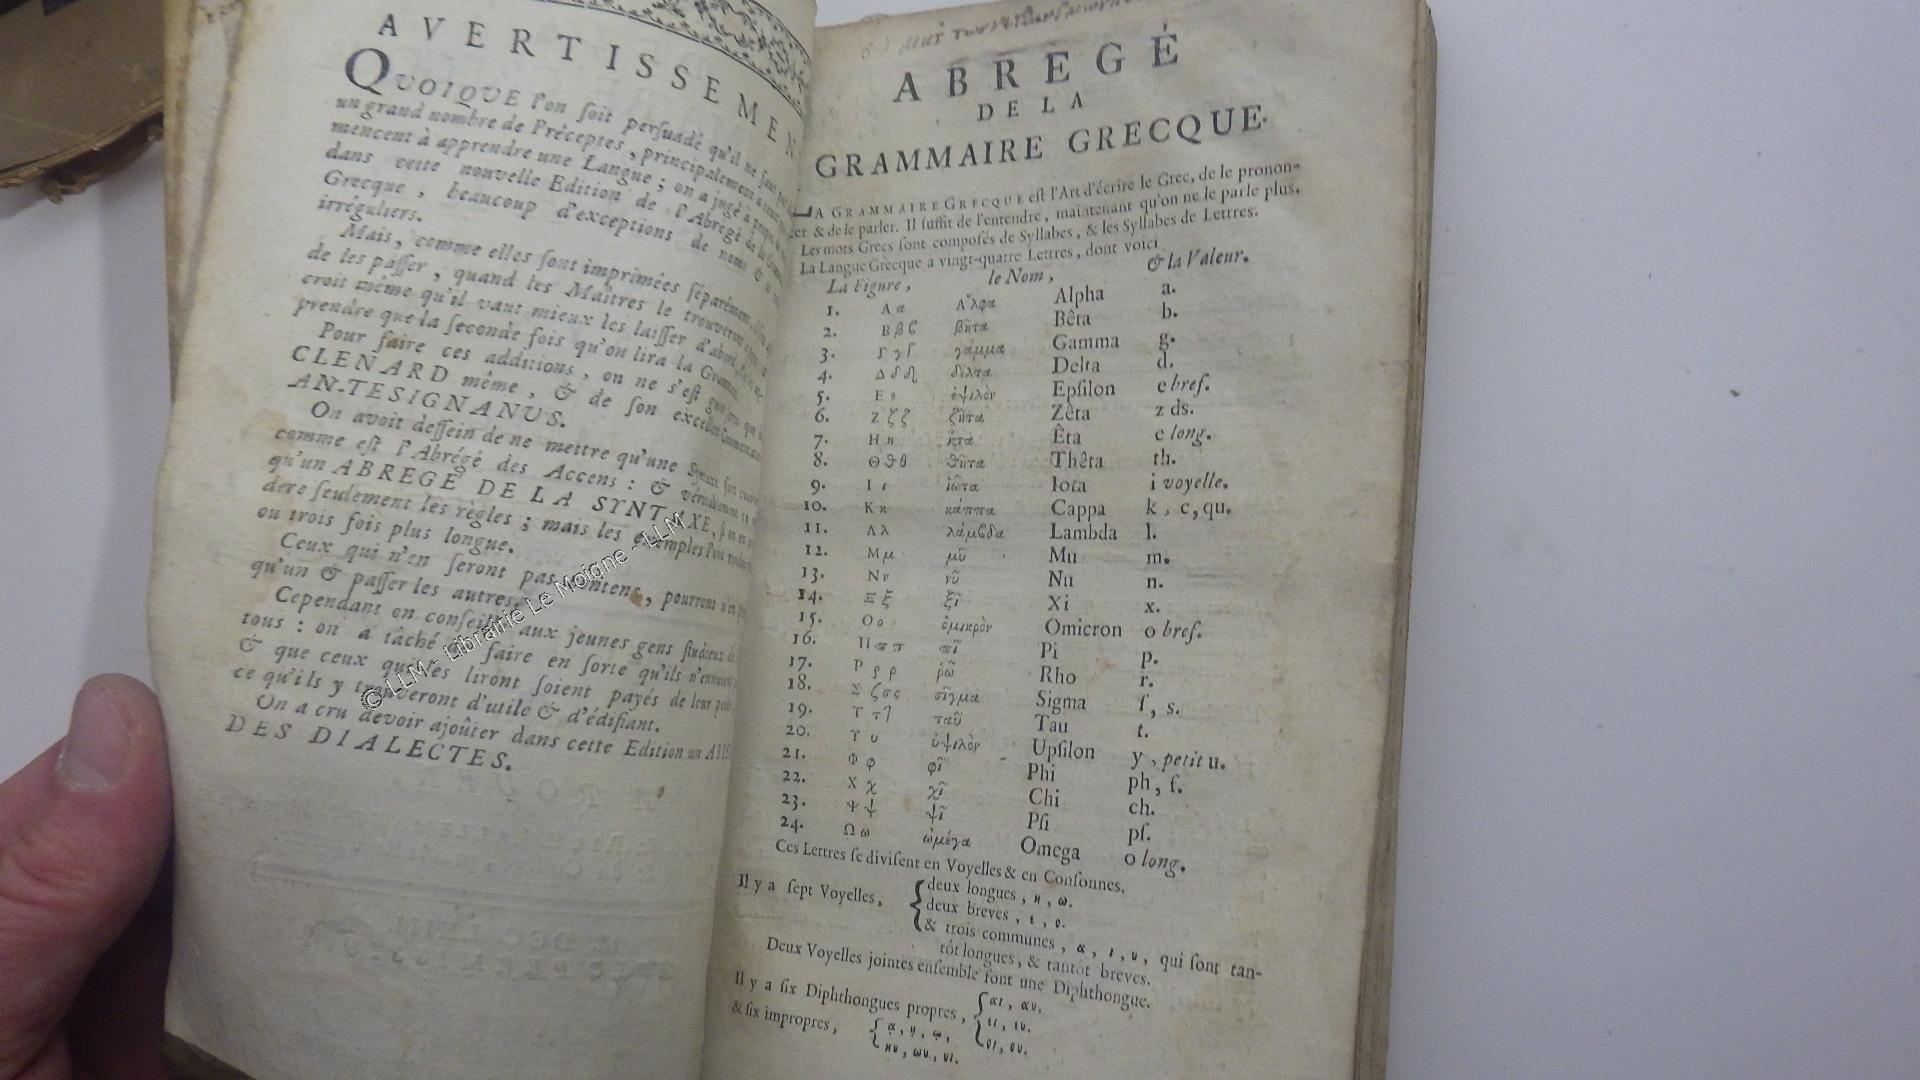 AVERTISSEMEN
QVOIQVE l'on ſoit perſuadé qu'il ne faut pas
un grand nombre de Préceptes, principalement à ceux
mencent à apprendre une Langue ; on a jugé à propos
dans cette nouvelle Edition de l'Abregé de la
Grecque, beaucoup d'exceptions de noms &
irréguliers.
Mais, comme elles ſont imprimées ſéparément,
de les paſſer, quand les Maîtres le trouveront
croit même qu'il vaut mieux les laiſſer d'abord,
prendre que la ſeconde fois qu'on lira la Gramm
Pour faire ces additions, on ne s'eſt
CLENARD même, & de ſon excellent Commentateur
AN-TESIGNANUS.
On avoit deſſein de ne mettre qu'une Syntaxe fort
comme eſt l'Abrégé des Accens : &
qu'un ABREGÉ DE LA SYNTAXE,
dere ſeulement les règles ; mais les exemples l'ont
ou trois fois plus longue.
Ceux qui n'en ſeront pas contens, pourront n'en
qu'un & paſſer les autres.
Cependant on conſeille aux jeunes gens ſtudieux de
tous : on a tâché de faire en ſorte qu'ils n'ennuient
& que ceux qui les liront ſoient payés de leur
ce qu'ils y trouveront d'utile & d'édifiant.
On a cru devoir ajoûter dans cette Edition un
DES DIALECTES.
© LLM - Librairie Le Moigne - LLM
ABREGÉ
DE LA
GRAMMAIRE GRECQUE.
LA GRAMMAIRE GRECQUE eſt l'Art d'écrire le Grec, de le pronon-
cer & de le parler. Il ſuffit de l'entendre, maintenant qu'on ne le parle plus.
Les mots Grecs ſont compoſés de Syllabes, & les Syllabes de Lettres.
La Langue Grecque a vingt-quatre Lettres, dont voici
La Figure, le Nom, & la Valeur.
1. Α α Ἄλφα Alpha a.
2. Β β ϐ βῆτα Bêta b.
3. Γ γ γάμμα Gamma g.
4. Δ δ δέλτα Delta d.
5. Ε ε ἐψιλὸν Epſilon e bref.
6. Ζ ζ ζ ζῆτα Zêta z ds.
7. Η η ἦτα Êta e long.
8. Θ ϑ θ ϑῆτα Thêta th.
9. Ι ι ἰῶτα Iota i voyelle.
10. Κ κ κάππα Cappa k, c, qu.
11. Λ λ λάμϐδα Lambda l.
12. Μ μ μῦ Mu m.
13. Ν ν νῦ Nu n.
14. Ξ ξ ξῖ Xi x.
15. Ο ο ὀμικρὸν Omicron o bref.
16. Π ϖ π ϖῖ Pi p.
17. Ρ ρ ρ ῥῶ Rho r.
18. Σ ζ σ ς σῖγμα Sigma ſ, s.
19. Τ τ ταῦ Tau t.
20. Υ υ ὐψιλὸν Upſilon y, petit u.
21. Φ φ φῖ Phi ph, f.
22. Χ χ χῖ Chi ch.
23. Ψ ψ ψῖ Pſi pſ.
24. Ω ω ὠμέγα Omega o long.
Ces Lettres ſe diviſent en Voyelles & en Conſonnes.
Il y a ſept Voyelles, deux longues, η, ω.
deux breves, ε, ο.
& trois communes, α, ι, υ, qui ſont tan-
tôt longues, & tantôt breves.
Deux Voyelles jointes enſemble font une Diphthongue.
Il y a ſix Diphthongues propres, αι, αυ.
ει, ευ.
οι, ου.
& ſix impropres, ᾳ, ῃ, ῳ,
ηυ, ωυ, υι.